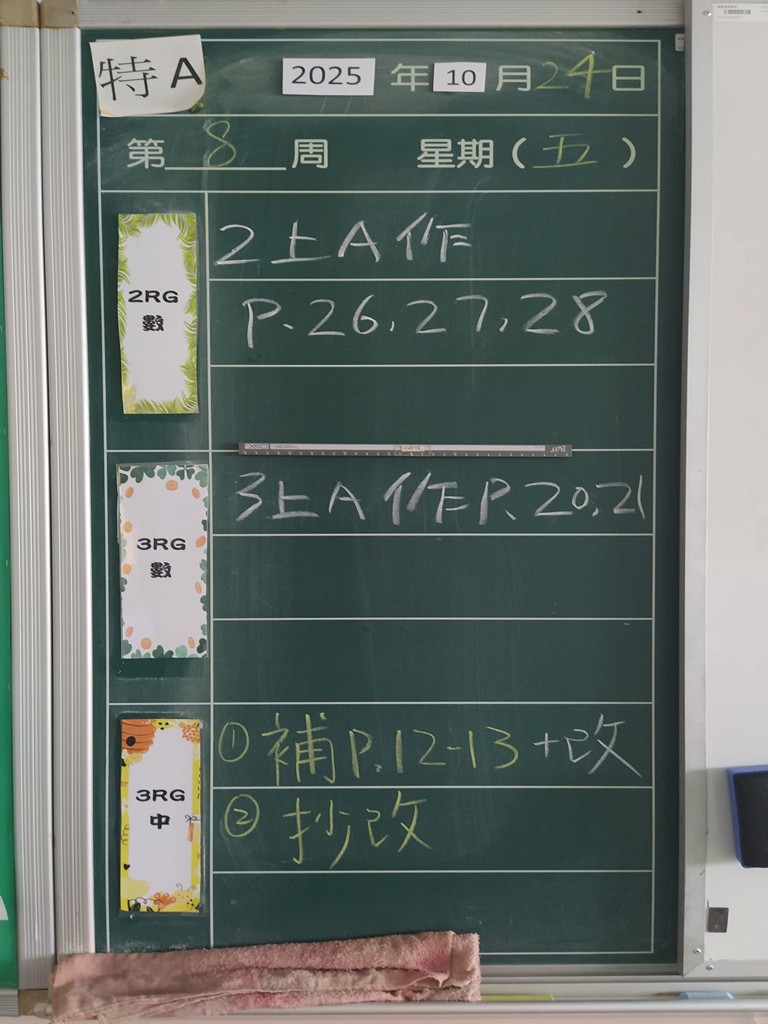 特A
2025 年 10 月 24 日
第 8 周 星期(五)
2RG
數
2上A 作
P.26,27,28
3RG
數
3上A 作P.20,21
3RG
中
①補P.12-13+改
②抄改